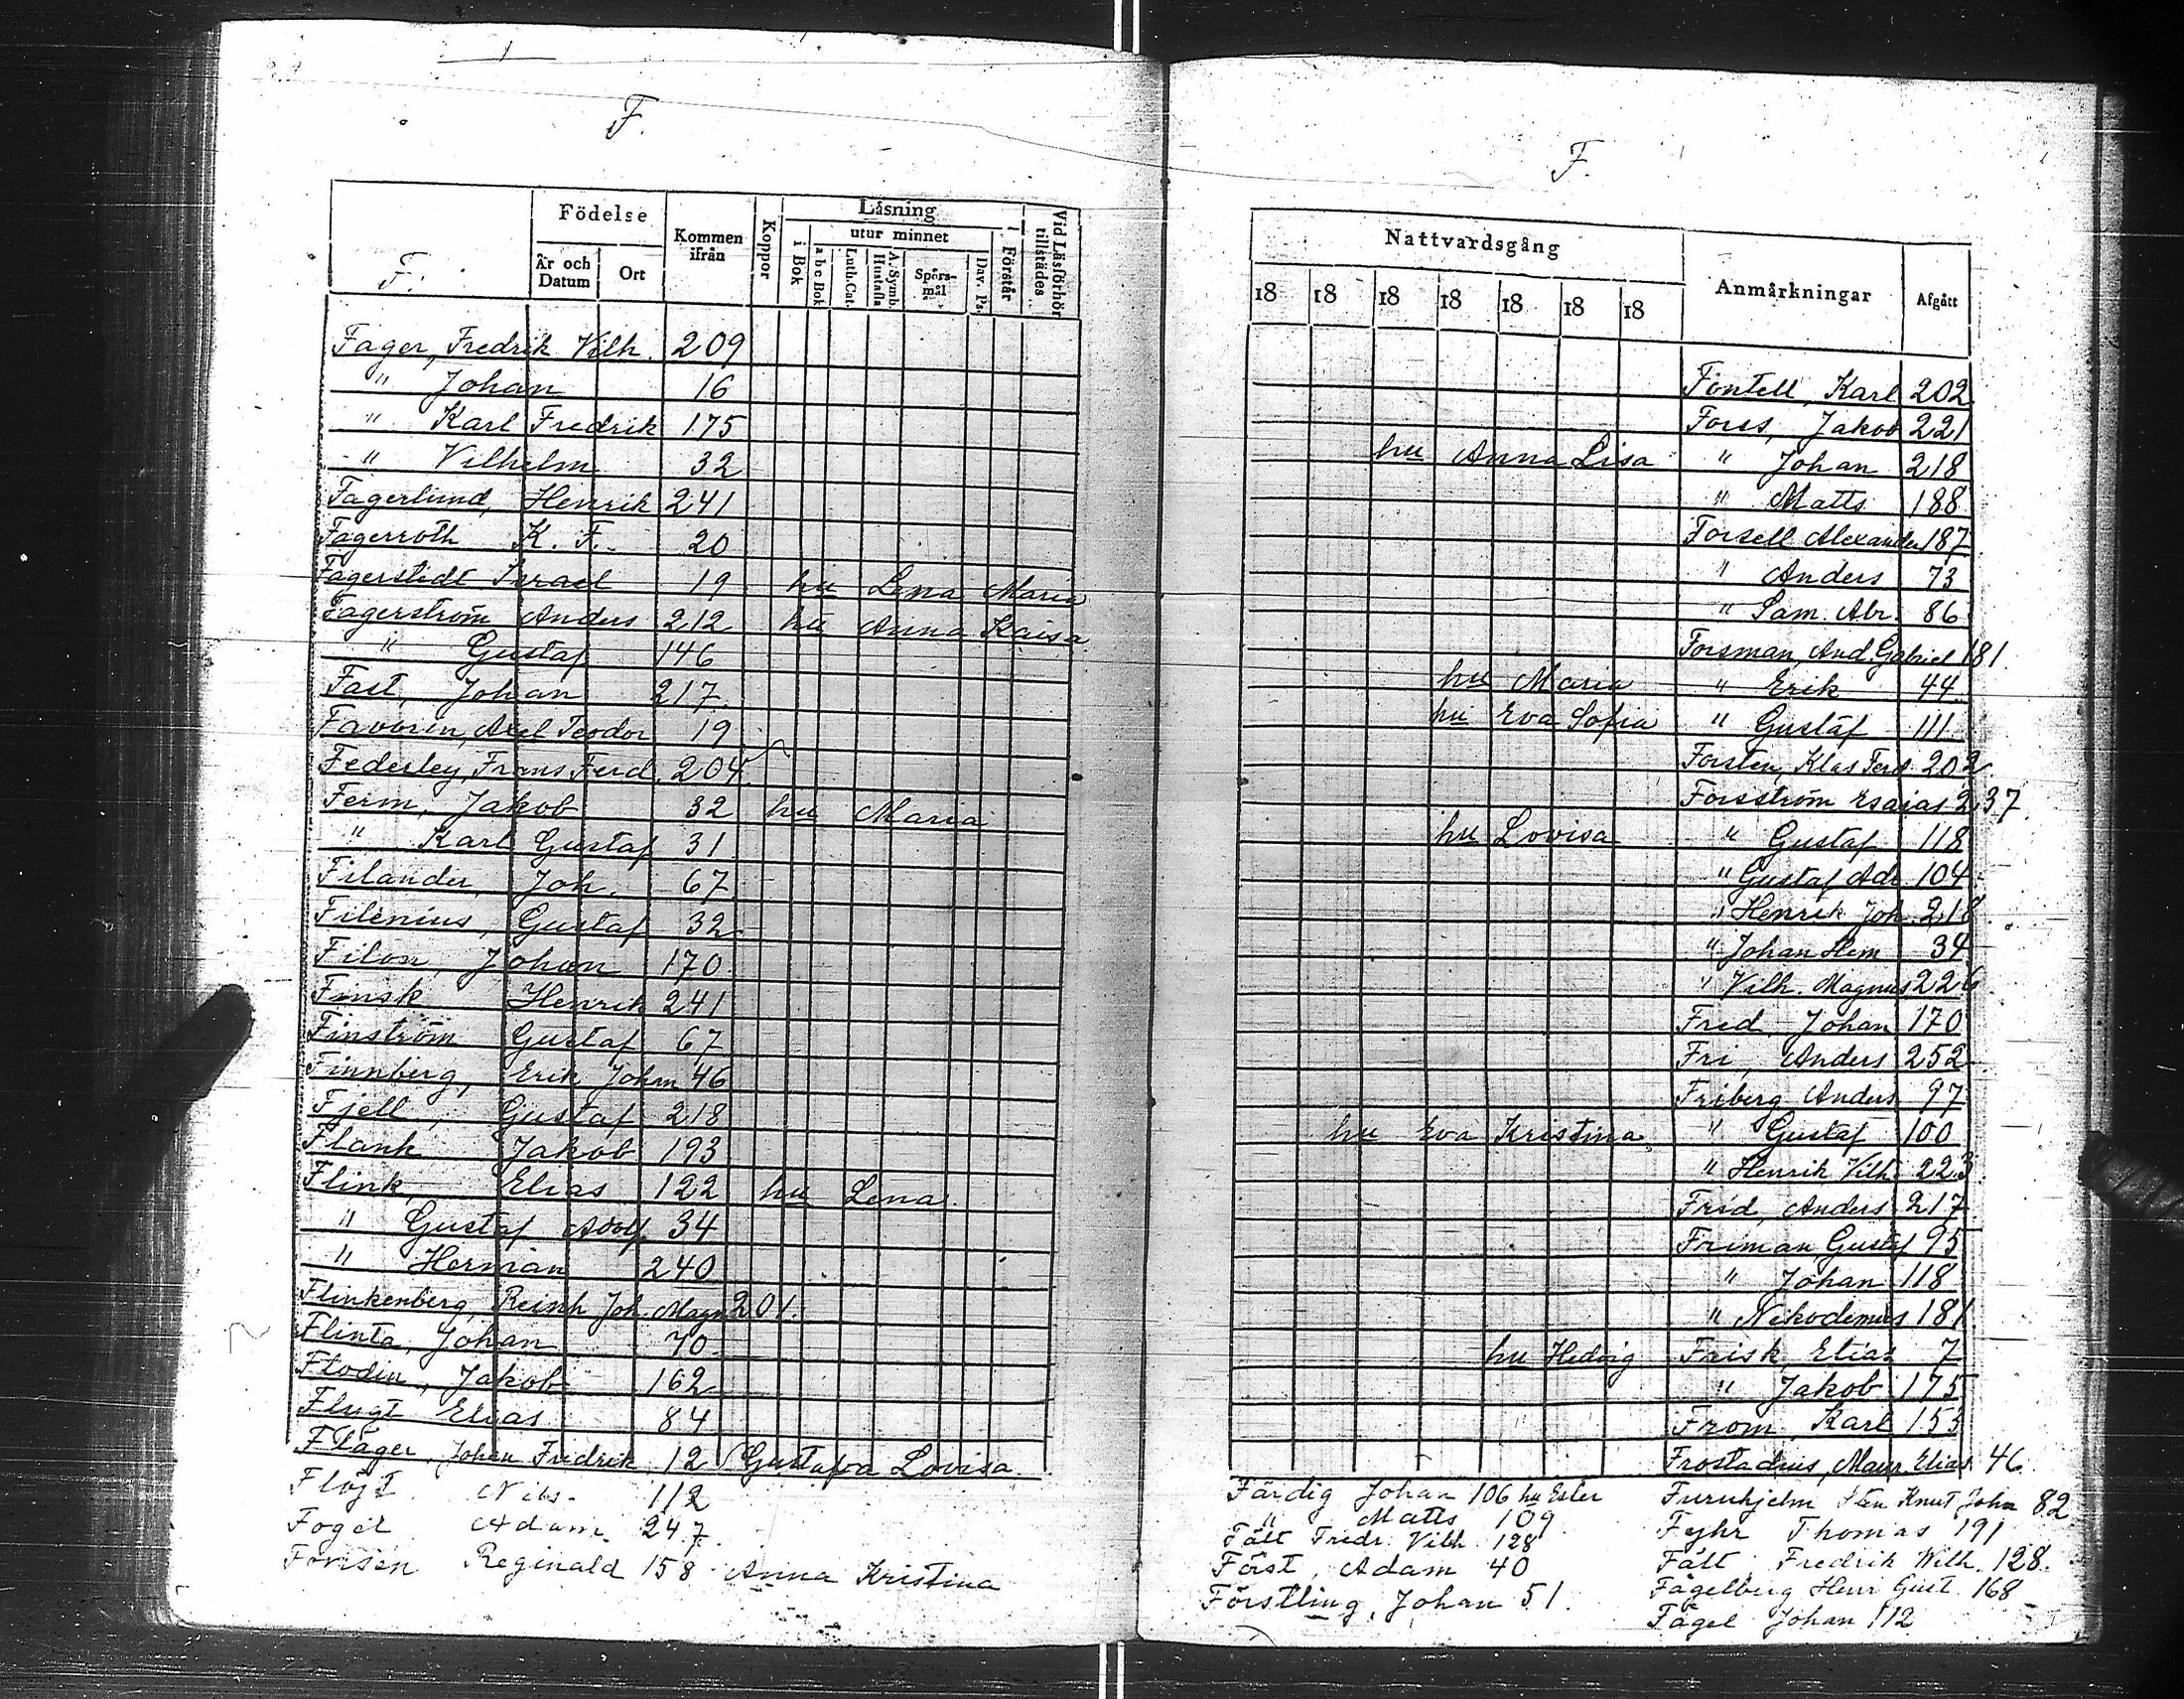 F.
Födelse
Kommen ifrån
Koppor
Läsning
Vid Läsförhör tillstädes
utur minnet
F.
År och Datum
Ort
i Bok
a b c Bok
Luth. Cat.
A. Symb. Hustafla
Spörsmål
Dav. Ps.
Förstår
Fager, Fredrik Vilh. 209
" Johan 16
" Karl Fredrik 175
" Vilhelm 32
Fagerlund, Henrik 241
Fagerroth K. F. 20
Fagerstedt Israel 19 hu Lena Maria
Fagerström Anders 212 hu Anna Kaisa
" Gustaf 146
Fast, Johan 217
Favorin, Axel Teodor 19
Federley, Frans Ferd. 204
Ferm, Jakob 32 hu Maria
" Karl Gustaf 31
Filander, Joh. 67
Filenius, Gustaf 32
Filon, Johan 170
Finsk Henrik 241
Finström Gustaf 67
Finnberg, Erik Johan 46
Fjell, Gustaf 218
Flank Jakob 193
Flink, Elias 122 hu Lena
" Gustaf Adolf 34
" Herman 240
Flinkenberg, Reinh Joh. Magn 201.
Flinta, Johan 70
Flodin, Jakob 162
Flugt Elias 84
Fläger, Johan Fridrik 12 Gustafva Lovisa
Flöjt Nils. 112
Fogel Adam 247
Reginald 158 Anna Kristina
F.
Nattvardsgång
Anmärkningar
Afgått
18 18 18 18 18 18 18
Fontell, Karl 202
Forss, Jakob 221
hu Anna Lisa " Johan 218
" Matts 188
Forsell Alexander 187
" Anders 73
" Sam. Abr. 86
Forsman, And. Gabriel 181.
hu Maria " Erik 44
hu Eva Sofia " Gustaf 111
Forsten, Klas Ferd. 202
Forsström Esaias 237
hu Lovisa " Gustaf 118
" Gustaf Adr. 104
" Henrik Joh. 218
" Johan Hem 34
" Vilh. Magnus 226
Fred, Johan 170
Fri, Anders 252
Friberg Anders 97
hu Eva Kristina " Gustaf 100
" Henrik Vilh. 223
Frid, Anders 217
Friman Gustaf 95
" Johan 118
" Nikodemus 181
hu Hedvig Frisk, Elias 7
" Jakob 175
From, Karl 153
Frostadius, Maur. Elias 46
Färdig Johan 106 hu Ester
" Matts 109
Fält Fredr. Vilh. 128
Först, Adam 40
Förstling, Johan 51.
Furuhjelm Sten Knut Joha 82
Fejhr Thomas 191
Fält, Fredrik Wilh. 128.
Fågelberg Henr Gust 168
Fågel Johan 112